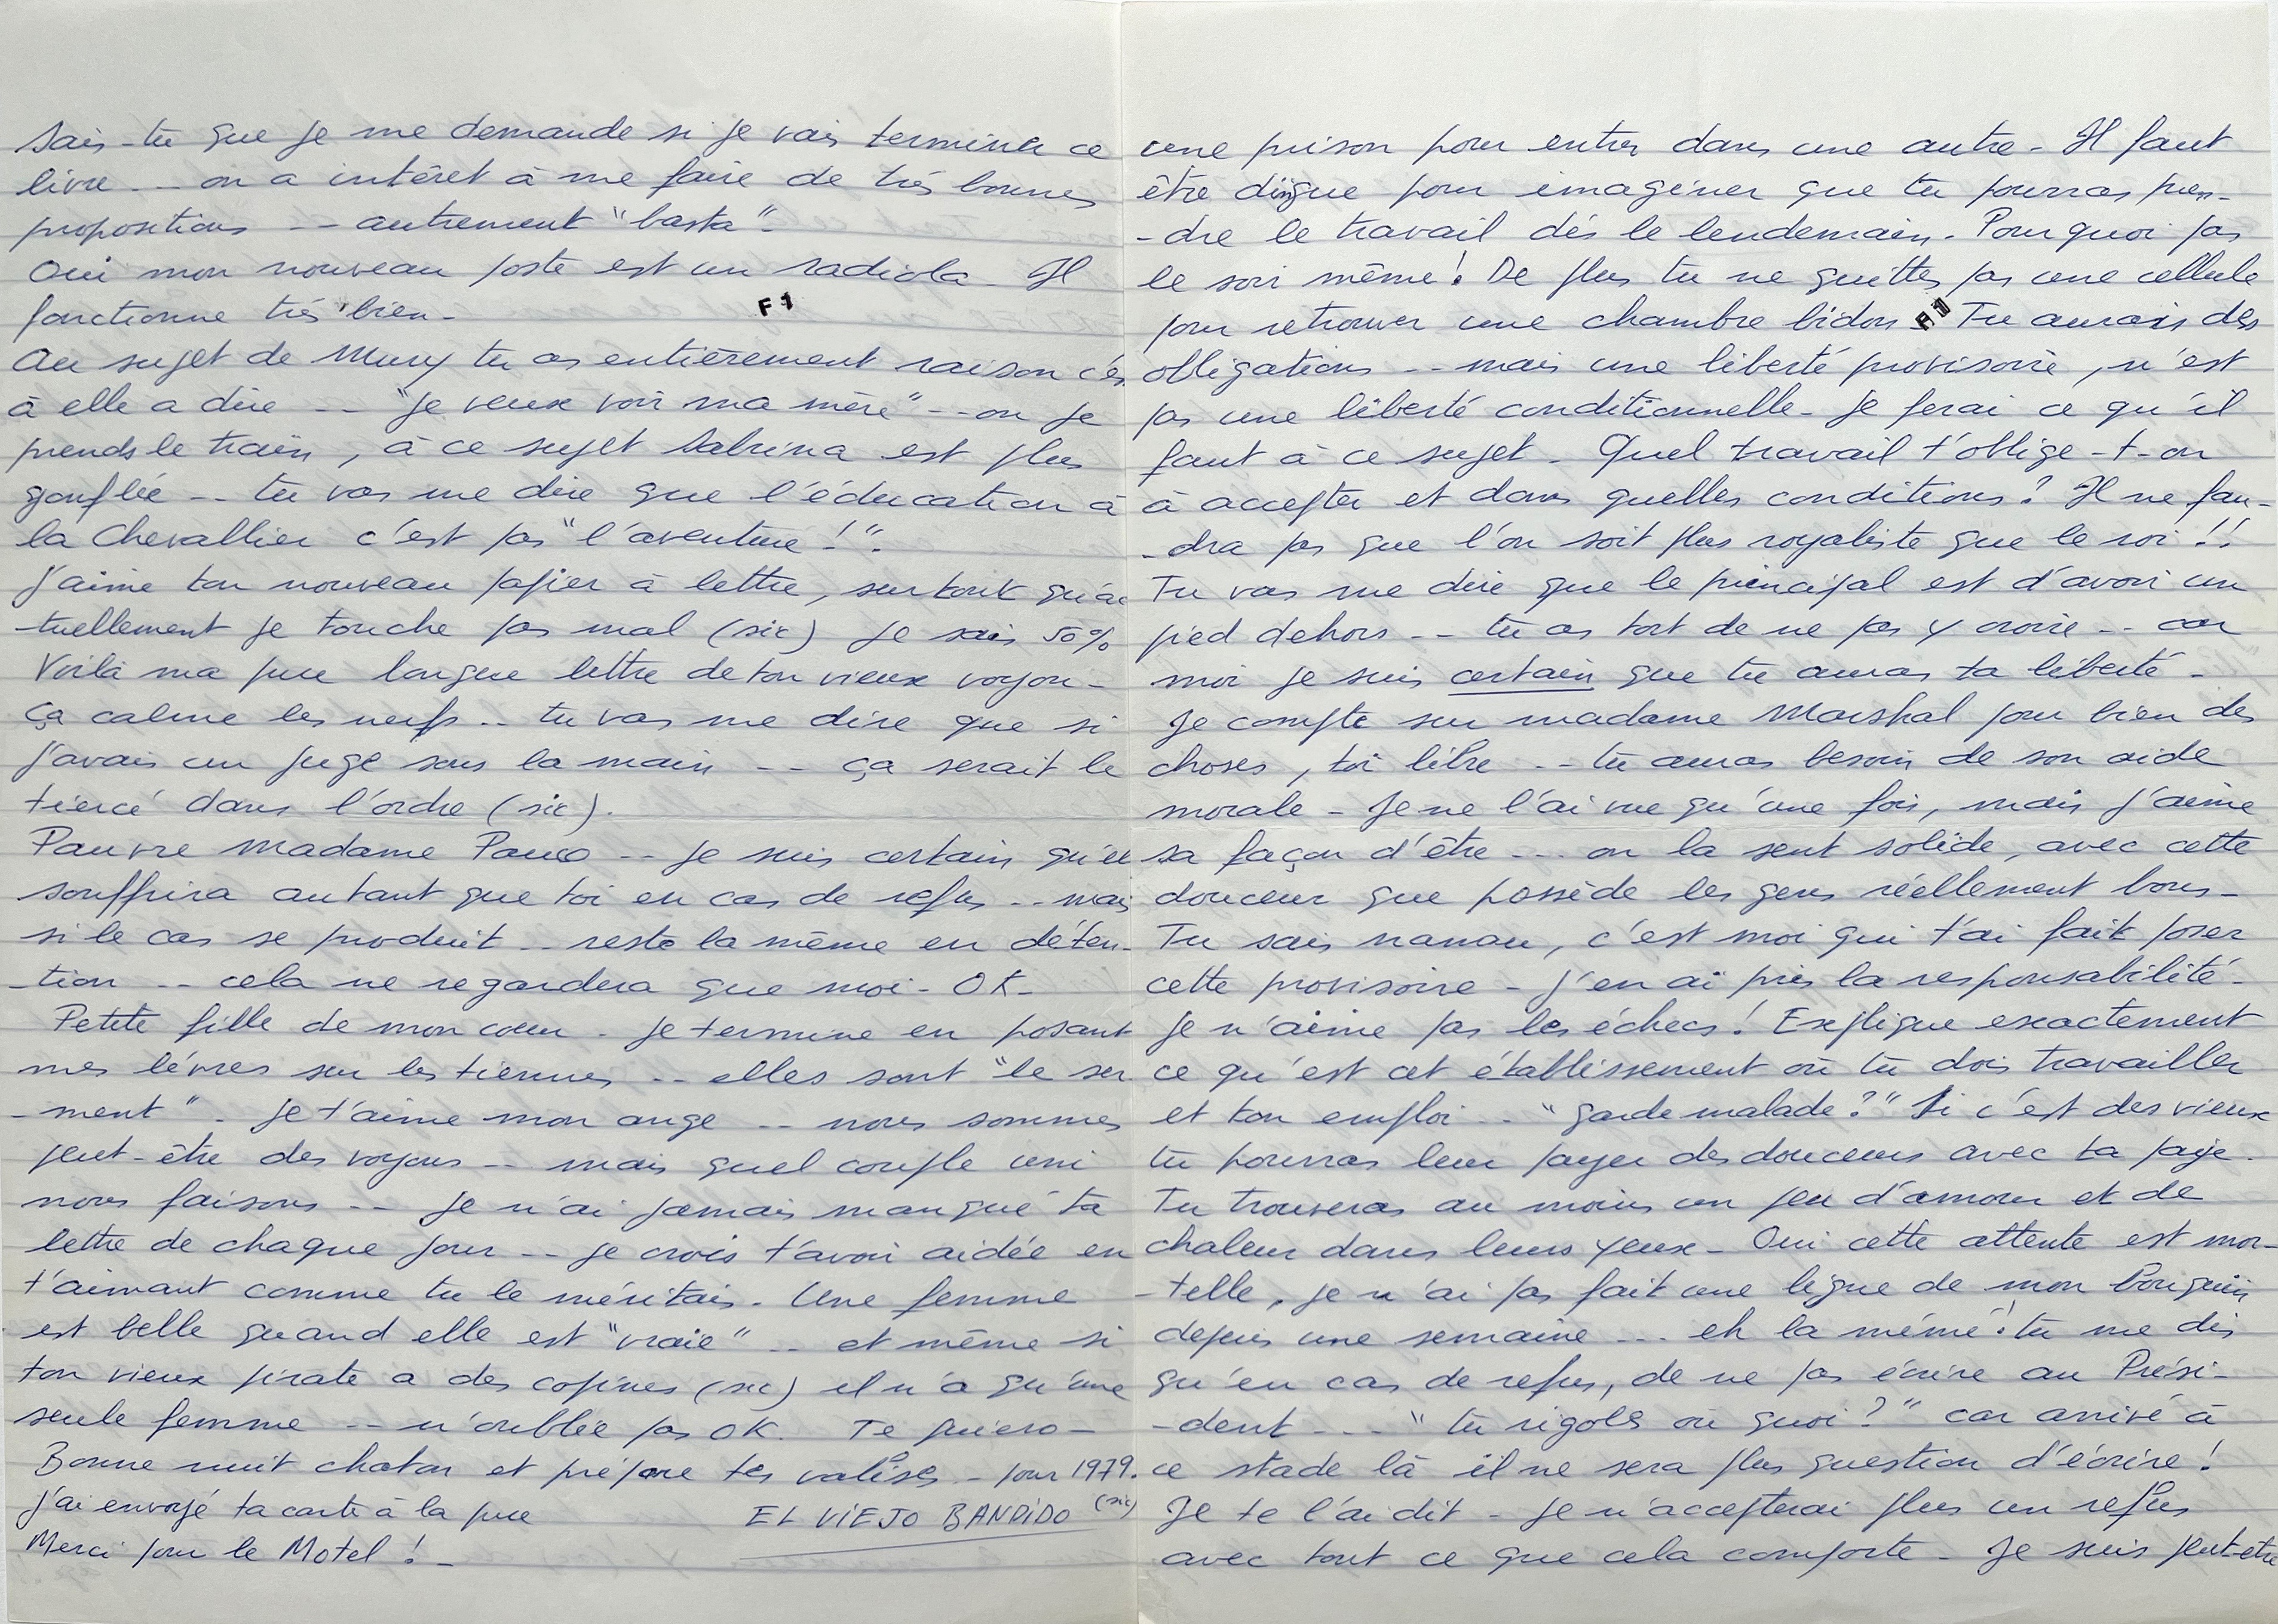 Sais-tu que je me demande si je vais terminer ce
livre -- on a intérêt à me faire de très bonnes
propositions -- autrement "basta" -
Oui mon nouveau poste est un radiola - Il
fonctionne très bien -
F1
Au sujet de Muny tu as entièrement raison c'es
à elle a dire -- "je veux voir ma mère" -- ou je
prends le train, à ce sujet Sabrina est plus
gonflée -- tu vas me dire que l'éducation à
la Chevallier c'est pas "l'aventure !".
J'aime ton nouveau papier à lettre, surtout qu'ac
-tuellement je touche pas mal (sic) je sais 50%
Voilà ma puce longue lettre de ton vieux voyou -
ça calme les nerfs -- tu vas me dire que si
j'avais un juge sous la main -- ça serait le
tiercé dans l'ordre (sic).
Pauvre madame -- je suis certain qu'el
souffrira autant que toi en cas de refus -- mais
si le cas se produit -- reste la même en déten-
-tion -- cela ne regardera que moi - OK -
Petite fille de mon cœur - je termine en posant
mes lèvres sur les tiennes -- elles sont "le ser
-ment" - je t'aime mon ange -- nous sommes
peut-être des voyous -- mais quel couple uni
nous faisons -- je n'ai jamais manqué ta
lettre de chaque jour -- je crois t'avoir aidée en
t'aimant comme tu le méritais - Une femme
est belle quand elle est "vraie" -- et même si
ton vieux pirate a des copines (sic) il n'a qu'une
seule femme -- n'oublie pas OK. Te quiero -
Bonne nuit chaton et prépare tes valises - pour 1979.
J'ai envoyé ta carte à la puce
EL VIEJO BANDIDO (sic)
Merci pour le Motel ! -
une prison pour entrer dans une autre - Il faut
être dingue pour imaginer que tu pourras pren-
-dre le travail dés le lendemain - Pourquoi pas
le soir même ! De plus tu ne quittes pas une cellule
pour retrouver une chambre bidon - Tu aurais des
F1
obligations -- mais une liberté provisoire, n'est
pas une liberté conditionnelle - je ferai ce qu'il
faut à ce sujet - Quel travail t'oblige-t-on
à accepter et dans quelles conditions ? Il ne fau-
-dra pas que l'on soit plus royaliste que le roi !!
Tu vas me dire que le principal est d'avoir un
pied dehors -- tu as tort de ne pas y croire -- car
moi je suis certain que tu auras ta liberté -
Je compte sur madame Marshal pour bien des
choses, toi libre -- tu auras besoin de son aide
morale - Je ne l'ai vue qu'une fois, mais j'aime
sa façon d'être --- on la sent solide, avec cette
douceur que possède les gens réellement bons -
Tu sais nanou, c'est moi qui t'ai fait poser
cette provisoire - j'en ai pris la responsabilité -
je n'aime pas les échecs ! Explique exactement
ce qu'est cet établissement où tu dois travailler
et ton emploi -- "garde malade ?" Si c'est des vieux
tu pourras leur payer des douceurs avec ta paye -
Tu trouveras au moins un peu d'amour et de
chaleur dans leurs yeux - Oui cette attente est mor-
-telle, je n'ai pas fait une ligne de mon bouquin
depuis une semaine --- eh la mémé ! tu me dis
qu'en cas de refus, de ne pas écrire au Prési-
-dent --- "tu rigoles ou quoi ?" car arrivé à
ce stade là il ne sera plus question d'écrire !
Je te l'ai dit - je n'accepterai plus un refus
avec tout ce que cela comporte - Je suis peut-etre